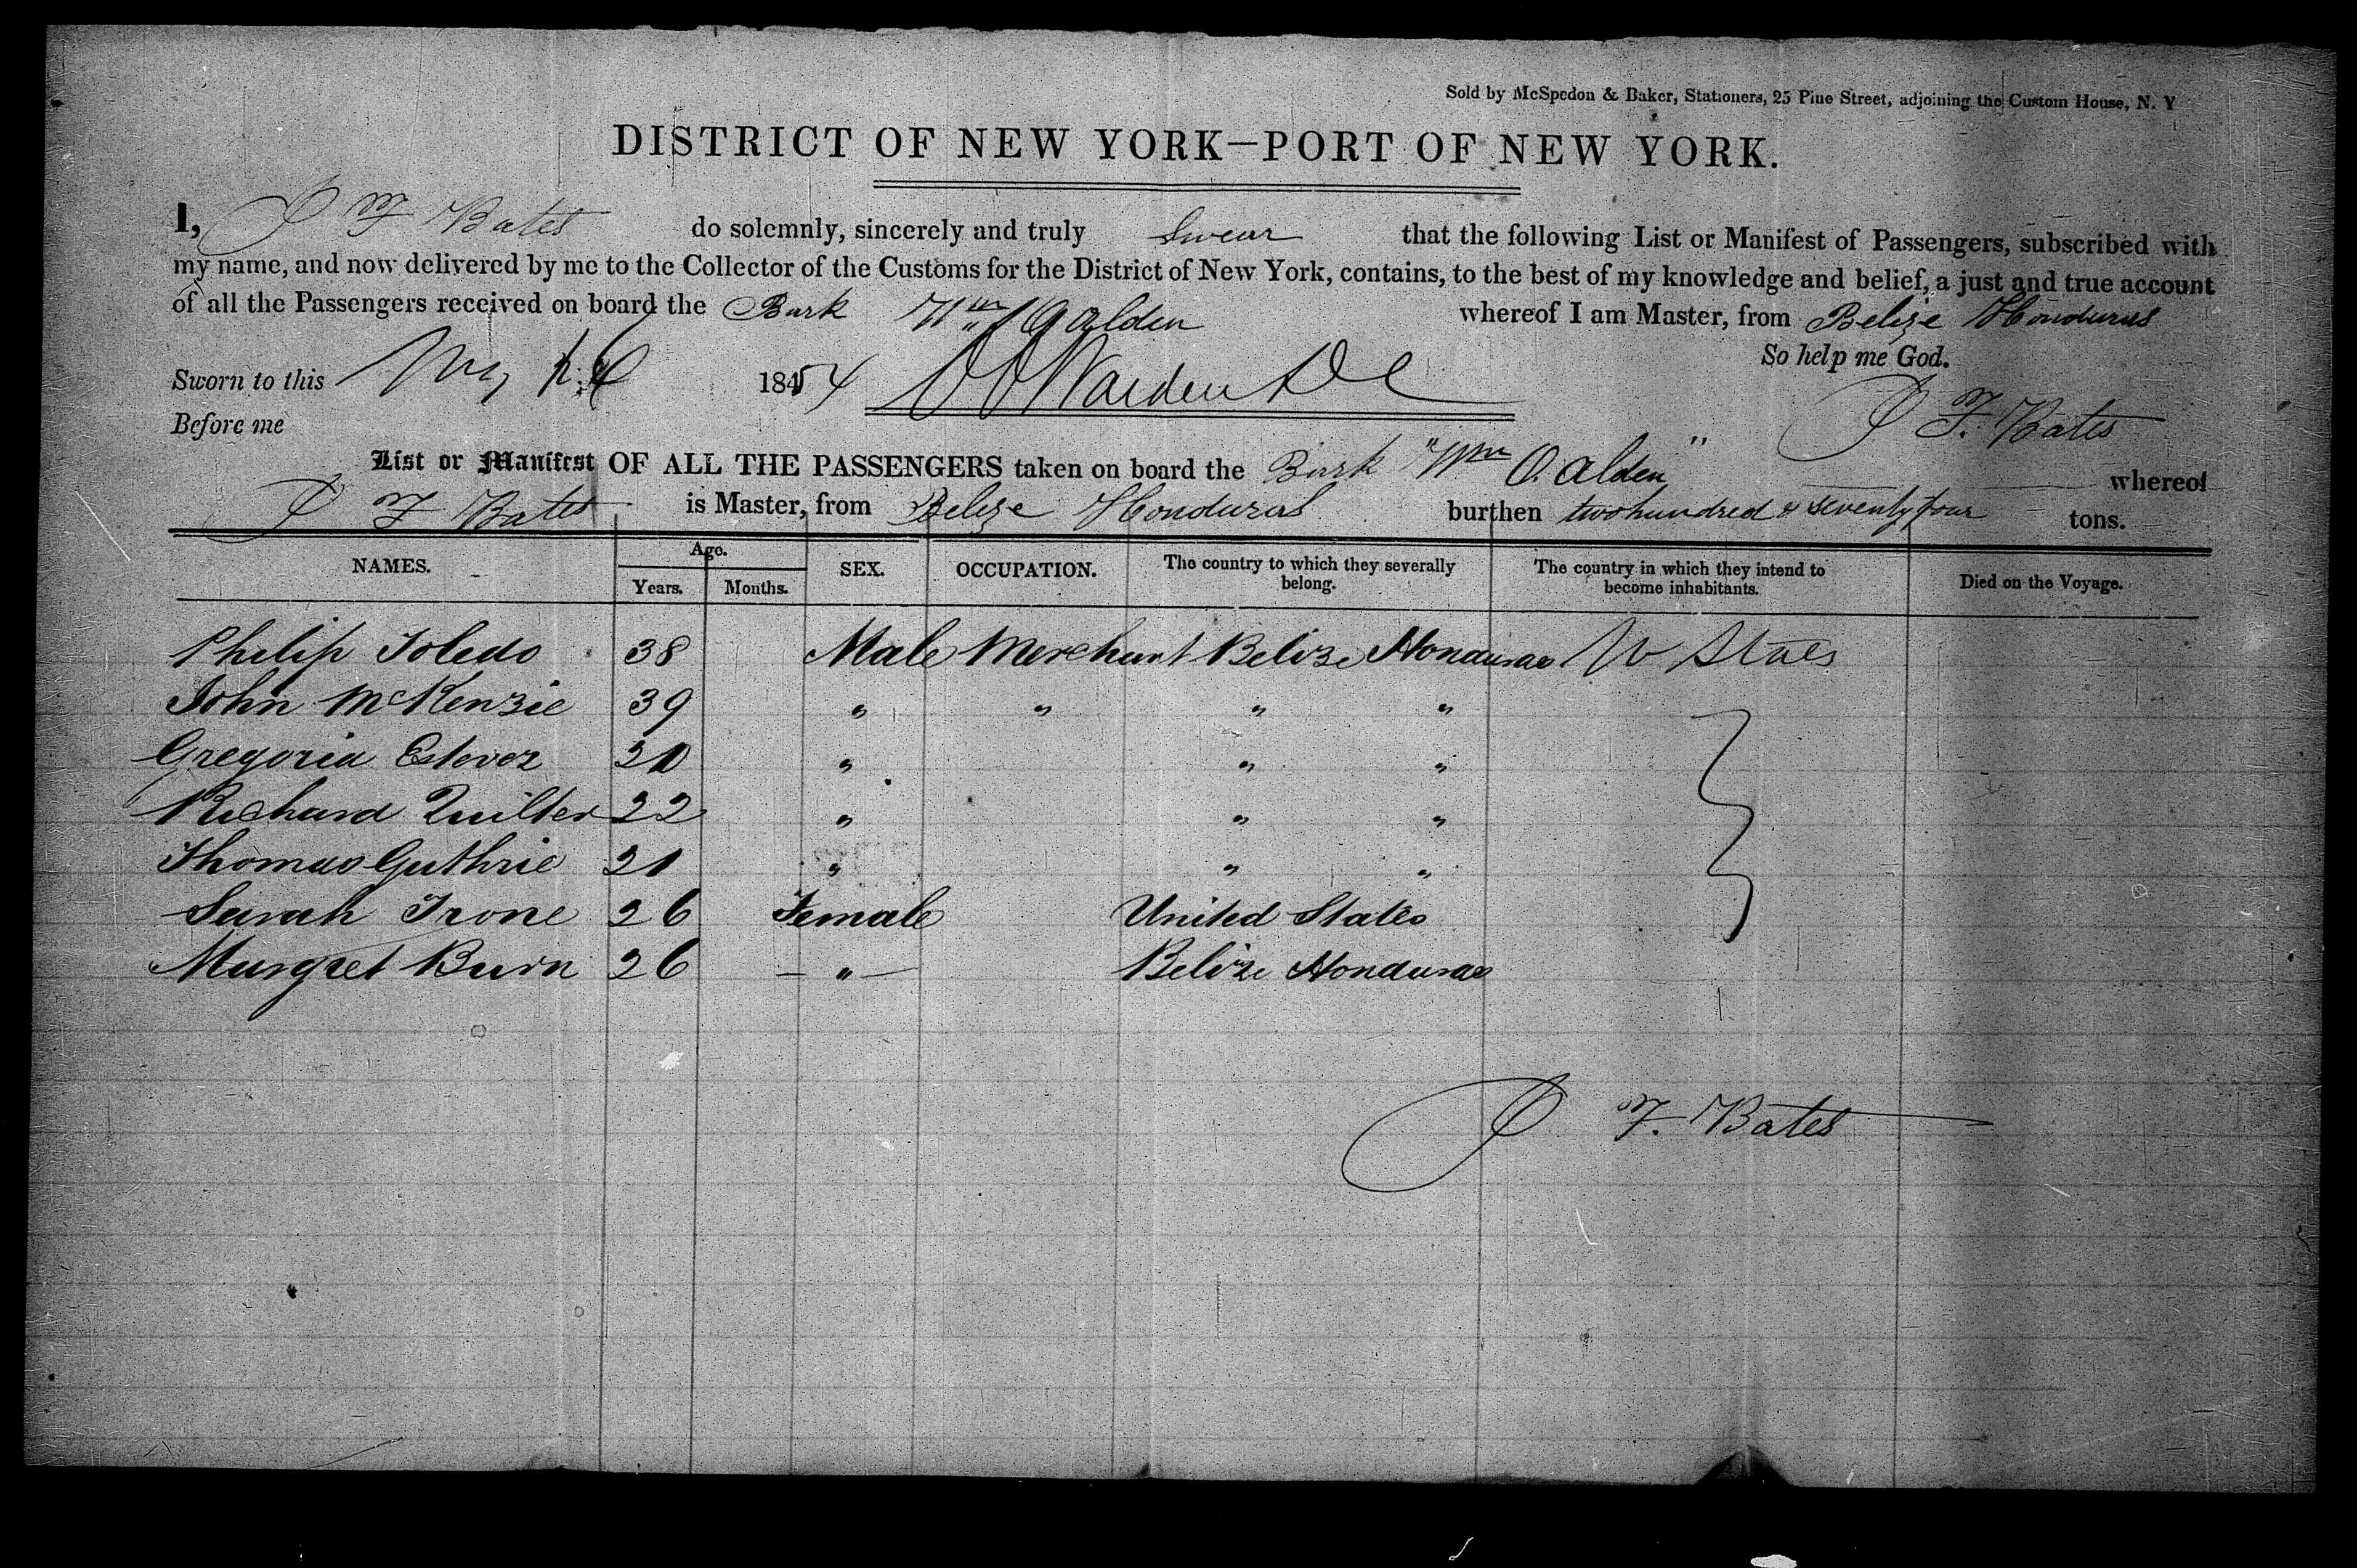 Sold by McSpedon & Baker, Stationers, 25 Pine Street, adjoining the Custom House, N. Y
DISTRICT OF NEW YORK—PORT OF NEW YORK.
I, J F Bates do solemnly, sincerely and truly Swear that the following List or Manifest of Passengers, subscribed with
my name, and now delivered by me to the Collector of the Customs for the District of New York, contains, to the best of my knowledge and belief, a just and true account
of all the Passengers received on board the Bark Wm O Alden whereof I am Master, from Belize Honduras
So help me God.
Sworn to this May 1854
Before me J F. Bates
List or Manifest OF ALL THE PASSENGERS taken on board the Bark "Wm O. Alden" whereof
J F Bates is Master, from Belize Honduras burthen two hundred & seventy four tons.
NAMES. Age. Years. Months. SEX. OCCUPATION. The country to which they severally belong. The country in which they intend to become inhabitants. Died on the Voyage.
Philip Toledo 38 Male Merchant Belize Honduras States
John McKenzie 39 " " " "
Gregoria Estevez " " "
Richard Quilter 22 " " "
Thomas Guthrie 21 " " "
Sarah Trone 26 Female United States
Margret Burn 26 " Belize Honduras
J F. Bates